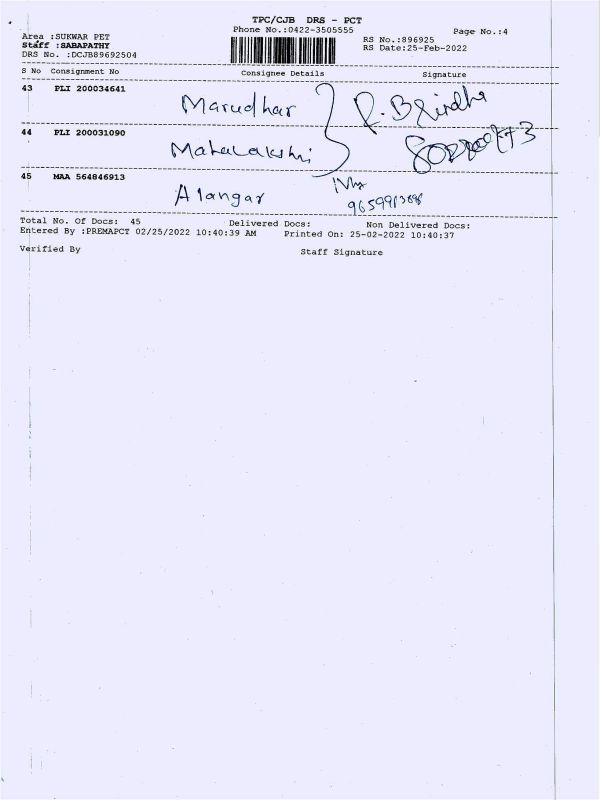 TPC/CJB DRS - PCT
Phone No.:0422-3505555
Page No.:4
Area :SUKWAR PET
Staff :SABAPATHY
DRS No. :DCJB89692504
RS No.:896925
RS Date:25-Feb-2022
S No Consignment No Consignee Details Signature
43 PLI 200034641
Marudhar
44 PLI 200031090
Mahalakshmi
45 MAA 564846913
Alangar
Total No. Of Docs: 45 Delivered Docs: Non Delivered Docs:
Entered By :PREMAPCT 02/25/2022 10:40:39 AM Printed On: 25-02-2022 10:40:37
Verified By Staff Signature